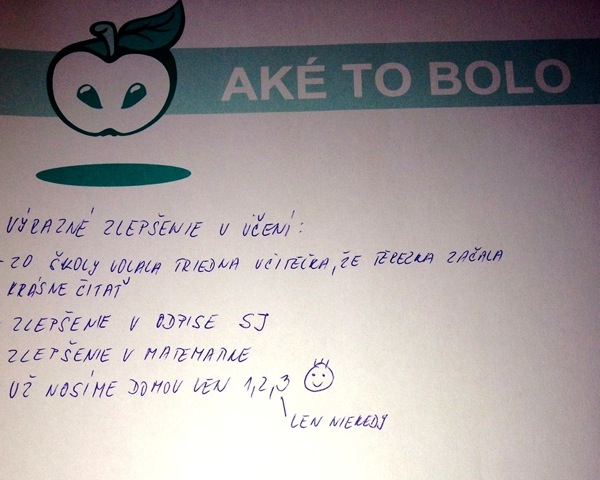 AKÉ TO BOLO
VÝRAZNÉ ZLEPŠENIE V UČENÍ:
- ZO ŠKOLY VOLALA TRIEDNA UČITEĽKA, ŽE TEREZKA ZAČALA
KRÁSNE ČÍTAŤ
- ZLEPŠENIE V ODPISE SJ
ZLEPŠENIE V MATEMATIKE
UŽ NOSÍME DOMOV LEN 1,2,3
LEN NIEKEDY